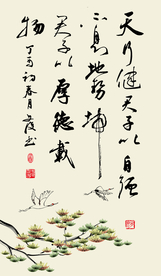 天行健君子以自强
不息地势坤
君子以厚德载
物
初春月